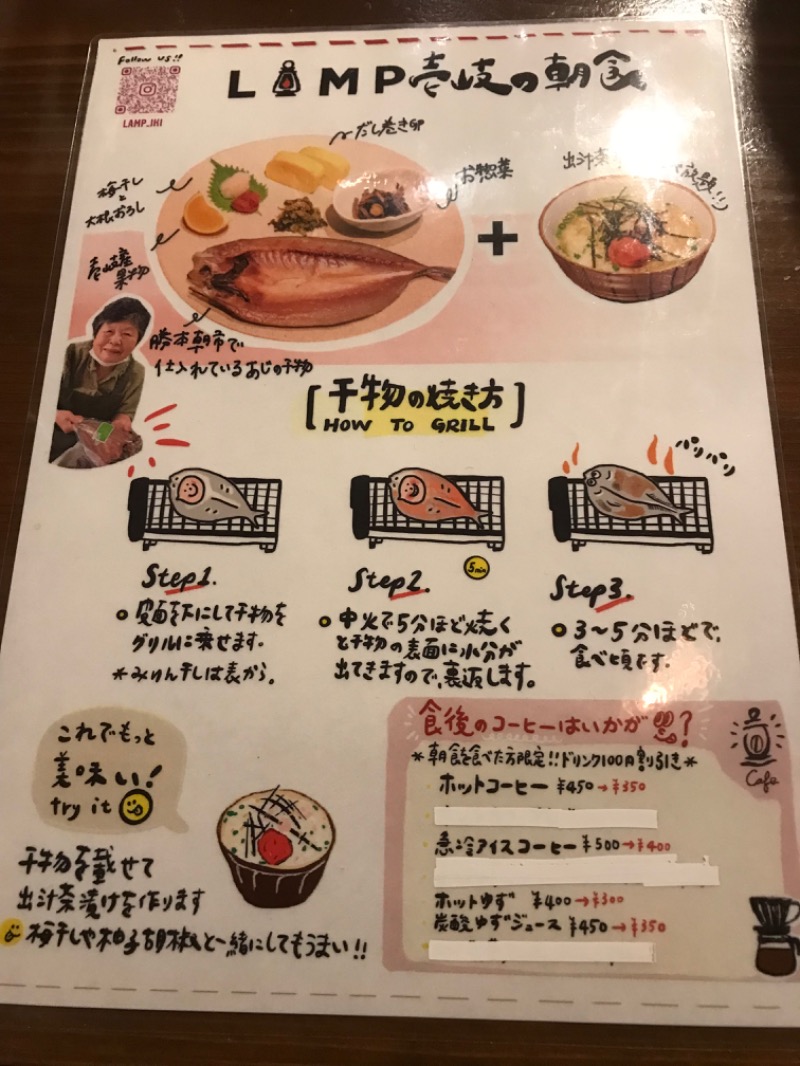 Follow us!!
LAMP_IKI
LAMP壱岐の朝食
だし巻き卵
お惣菜
出汁茶
放題!!
梅干し
と
大根おろし
壱岐産
果物
+
勝本朝市で
仕入れているあじの干物
[干物の焼き方]
HOW TO GRILL
パリパリ
Step1.
5min
Step2.
Step3.
皮面を下にして干物を
グリルに乗せます。
*みりん干しは表から。
中火で5分ほど焼く
と干物の表面に水分が
出てきますので、裏返します。
3〜5分ほどで、
食べ頃です。
これでもっと
美味い!
try it
干物を載せて
出汁茶漬けを作ります
梅干しや柚子胡椒と一緒にしてもうまい!!
食後のコーヒーはいかが?
*朝食を食べた方限定!!ドリンク100円割り引き*
Cafe
ホットコーヒー ¥450→¥350
急冷アイスコーヒー ¥500→¥400
ホットゆず ¥400→¥300
炭酸ゆずジュース ¥450→¥350